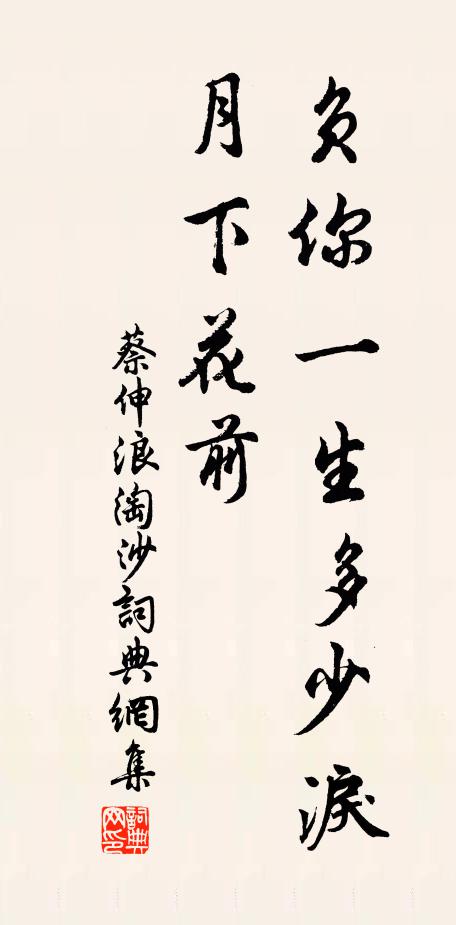 负你一生多少淚
月下花前
蔡伸浪淘沙詞典網集
詞典网印